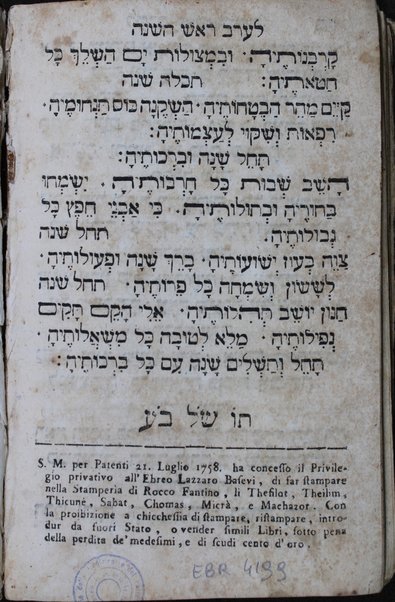 לערב ראש השנה
קָרְבְּנוֹתֶיהָ: וּבִמְצוּלוֹת יָם הַשְׁלֵךְ כָּל
חַטֹּאתֶיהָ: תכלה שנה
קַיֵּם מַהֵר הַבְטָחוֹתֶיהָ. הַשְׁקֶנָה כּוֹס תַּנְחוּמֶיהָ.
רִפְאוּת וְשִׁקּוּי לְעַצְמוֹתֶיהָ:
תָּחֵל שָׁנָה וּבִרְכוֹתֶיהָ:
הָשֵׁב שְׁבוּת כָּל חָרְבוֹתֶיהָ. יִשְׂמְחוּ
בַּחוּרֶיהָ וּבְתוּלוֹתֶיהָ. כִּי אַבְנֵי חֵפֶץ כָּל
גְּבוּלוֹתֶיהָ. תחל שנה
צַוֵּה בְּעוֹז יְשׁוּעוֹתֶיהָ. בָּרֵךְ שָׁנָה וּפְעוּלוֹתֶיהָ.
לְשָׂשׂוֹן וְשִׂמְחָה כָּל פֵּרוֹתֶיהָ. תחל שנה
חַנּוּן יוֹשֵׁב תְּהִלּוֹתֶיהָ. אֵלִי הָקֵם תָּקִים
נְפִילוֹתֶיהָ. מַלֵּא לְטוֹבָה כָּל מִשְׁאֲלוֹתֶיהָ.
תָּחֵל וְתַשְׁלִים שָׁנָה עִם כָּל בִּרְכוֹתֶיהָ:
תו של בע
S. M. per Patenti 21. Luglio 1758. ha concesso il Privile-
gio privativo all'Ebreo Lazzaro Basevi, di far stampare
nella Stamperia di Rocco Fantino, li Thefilot, Theilim,
Thicuné, Sabat, Chomas, Micrà, e Machazor. Con
la proibizione a chicchessia di stampare, ristampare, intro-
dur da fuori Stato, o vender simili Libri, sotto pena
della perdita de' medesimi, e di scudi cento d'oro.
EBR 4199